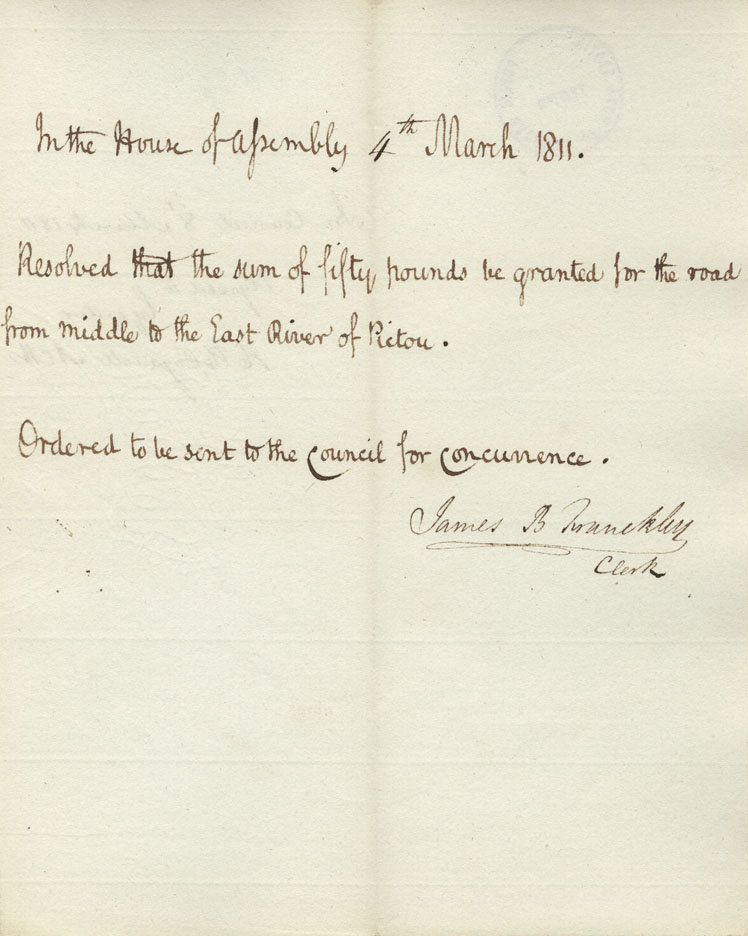 In the House of Assembly 4th March 1811.
Resolved that the sum of fifty pounds be granted for the road
from middle to the East River of Pictou.
Ordered to be sent to the Council for concurrence.
James B Franckley
Clerk